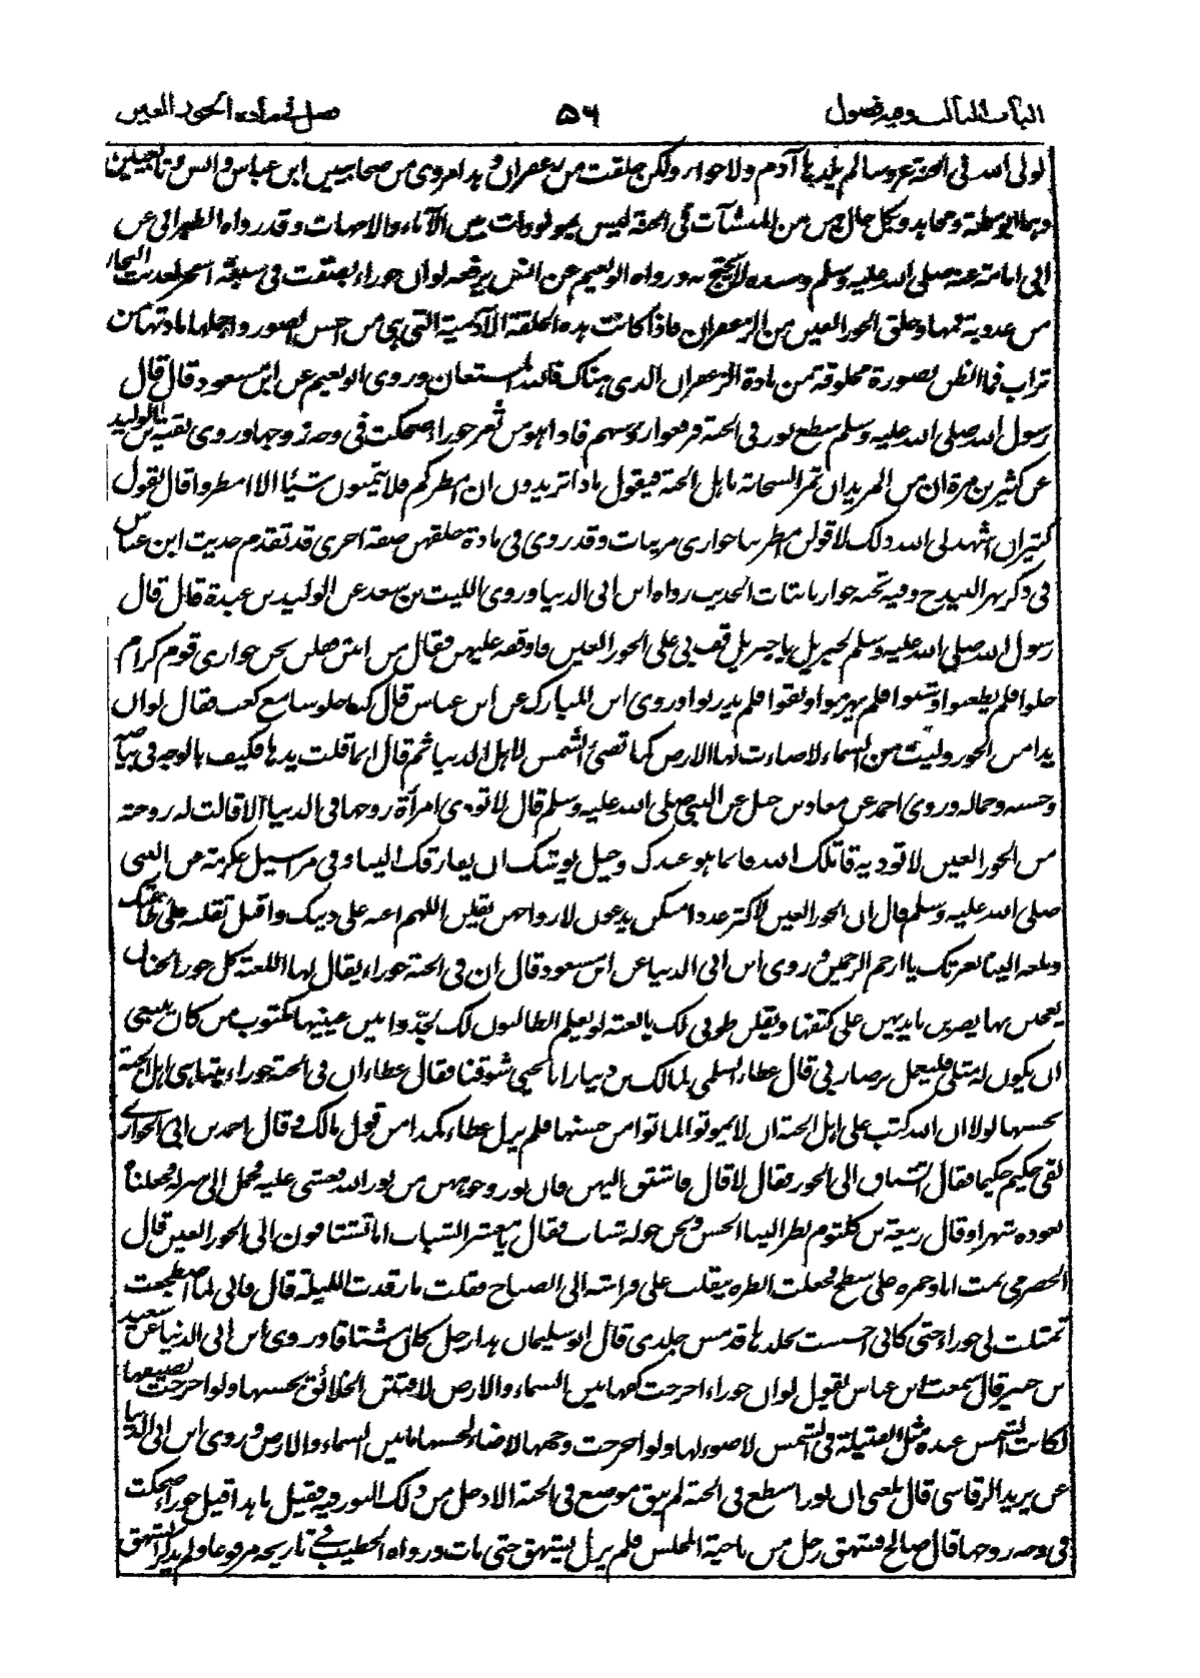 الباب الثالث وفيه فصول ٥٦ فصل في مادة الحور العين
لولي الله في الجنة عروسا لم يلدها آدم ولا حواء ولكن خلقت من زعفران وهذا مروي من صحابيين ابن عباس وانس وتابعيين
وهما ابو سلمة ومجاهد وبكل حال هن من المنشآت في الجنة ليس بمولودات بين الآباء والامهات وقد رواه الطبراني عن
ابي امامة عنه صلى الله عليه وسلم وسنده لا يحتج به ورواه ابو نعيم عن انس يرفعه لو ان حوراء بصقت في سبعة ابحر لعذبت البحار
من عذوبة فمها وخلق الحور العين من الزعفران فاذا كانت هذه الخلقة الآدمية التي هي من احسن الصور واجملها مادتها من
تراب فما الظن بصورة مخلوقة من مادة الزعفران الذي هناك فالله المستعان وروى ابو نعيم عن ابن مسعود قال قال
رسول الله صلى الله عليه وسلم سطع نور في الجنة فرفعوا رؤسهم فاذا هو من ثغر حوراء ضحكت في وجه زوجها وروى بقية بن الوليد
عن كثير بن مرة ان من المزيد ان تمر السحابة باهل الجنة فيقول ماذا تريدون ان امطركم فلا يتمنون شيئا الا امطروا قال يقول
كثير ان اشهدني الله ذلك لاقولن امطرينا جواري مزينات وقد روي في مادة خلقهن صفة اخرى قد تقدم حديث ابن عباس
في ذكر نهر البيدح وفيه تحته جوار نابتات الحديث رواه ابن ابي الدنيا وروى الليث بن سعد عن الوليد بن عبدة قال قال
رسول الله صلى الله عليه وسلم لجبريل يا جبريل قف بي على الحور العين فاوقفه عليهن فقال من انتن قلن نحن جواري قوم كرام
حلوا فلم يظعنوا وشبوا فلم يهرموا ونقوا فلم يدرنوا وروى ابن المبارك عن ابن عباس قال كنا جلوسا مع كعب فقال لو ان
يدا من الحور دليت من السماء لاضاءت لها الارض كما تضئ الشمس لاهل الدنيا ثم قال انما قلت يدها فكيف بالوجه في بياضه
وحسنه وجماله وروى احمد عن معاذ بن جبل عن النبي صلى الله عليه وسلم قال لا تؤذي امرأة زوجها في الدنيا الا قالت له زوجته
من الحور العين لا تؤذيه قاتلك الله فانما هو عندك دخيل يوشك ان يفارقك الينا وفي مراسيل عكرمة عن النبي
صلى الله عليه وسلم قال ان الحور العين لاكثر عددا منكن يدعون لازواجهن يقلن اللهم اعنه على دينك واقبل بقلبه على طاعتك
وبلغه الينا بعزتك يا ارحم الراحمين وروى ابن ابي الدنيا عن ابن مسعود قال ان في الجنة حوراء يقال لها اللعبة كل حور الجنان
يعجبن بها يضربن بايديهن على كتفها ويقلن طوبى لك يا لعبة لو يعلم الطالبون لك لجدوا بين عينيها مكتوب من كان يبتغي
ان يكون له مثلي فليعمل برضاء ربي قال عطاء السلمي لمالك بن دينار يا ابا يحيى شوقنا فقال عطاء ان في الجنة حوراء يتباهى اهل الجنة
بحسنها لولا ان الله كتب على اهل الجنة ان لا يموتوا لماتوا من حسنها فلم يزل عطاء كمدا من قول مالك وقال احمد بن ابي الحواري
لقي حكيم حكيما فقال اتشتاق الى الحور فقال لا قال فاشتق اليهن فان نور وجوههن من نور الله فغشي عليه فحمل الى منزله فجعلنا
نعوده شهرا وقال ربيعة بن كلثوم نظر الينا الحسن ونحن حوله شباب فقال يا معشر الشباب اما تشتاقون الى الحور العين قال
الحضرمي نمت انا وحمزة على سطح فجعلت انظره يتقلب على فراشه الى الصباح فقلت ما رقدت الليلة قال فاني لما اضطجعت
تمثلت لي حوراء حتى كاني احسست بجلدها قد مس جلدي قال ابو سليمان هذا رجل كان مشتاقا وروى ابن ابي الدنيا عن سعيد
بن جبير قال سمعت ابن عباس يقول لو ان حوراء اخرجت كفها بين السماء والارض لافتتن الخلائق بحسنها ولو اخرجت نصيفها
لكانت الشمس عنده مثل الفتيلة في الشمس لا ضوء لها ولو اخرجت وجهها لاضاء لحسنها ما بين السماء والارض وروى ابن ابي الدنيا
عن يزيد الرقاشي قال بلغني ان نورا سطع في الجنة لم يبق موضع في الجنة الا دخل من ذلك النور فيه فقيل ما هذا قيل حوراء ضحكت
في وجه زوجها قال صالح فشهق رجل من ناحية المجلس فلم يزل يشهق حتى مات ورواه الخطيب في تاريخه مرفوعا ولم يذكر الشهق